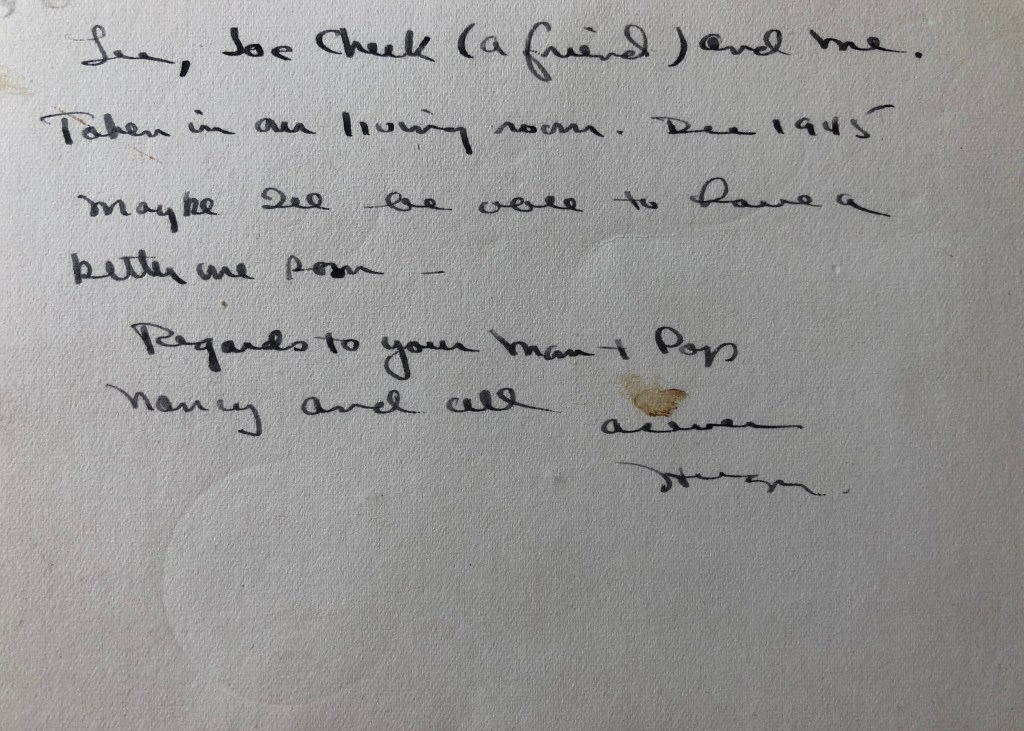 Lee, Joe Cheek (a friend) and me.
Taken in our living room. Dec 1945
maybe I'll be able to have a
better one soon —
Regards to your Mom + Pops
Nancy and all